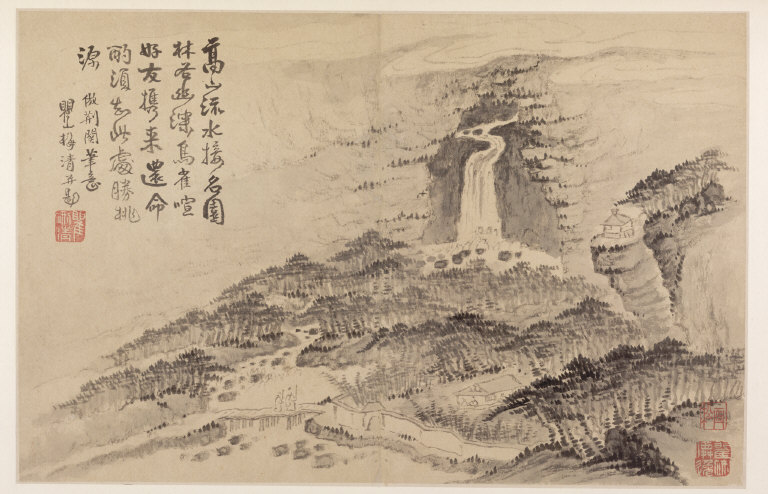 高山流水接名園
林谷幽深鳥雀喧
好友携来還命
酌須知此處勝桃
源
倣荊關筆意
瞿山梅清并題